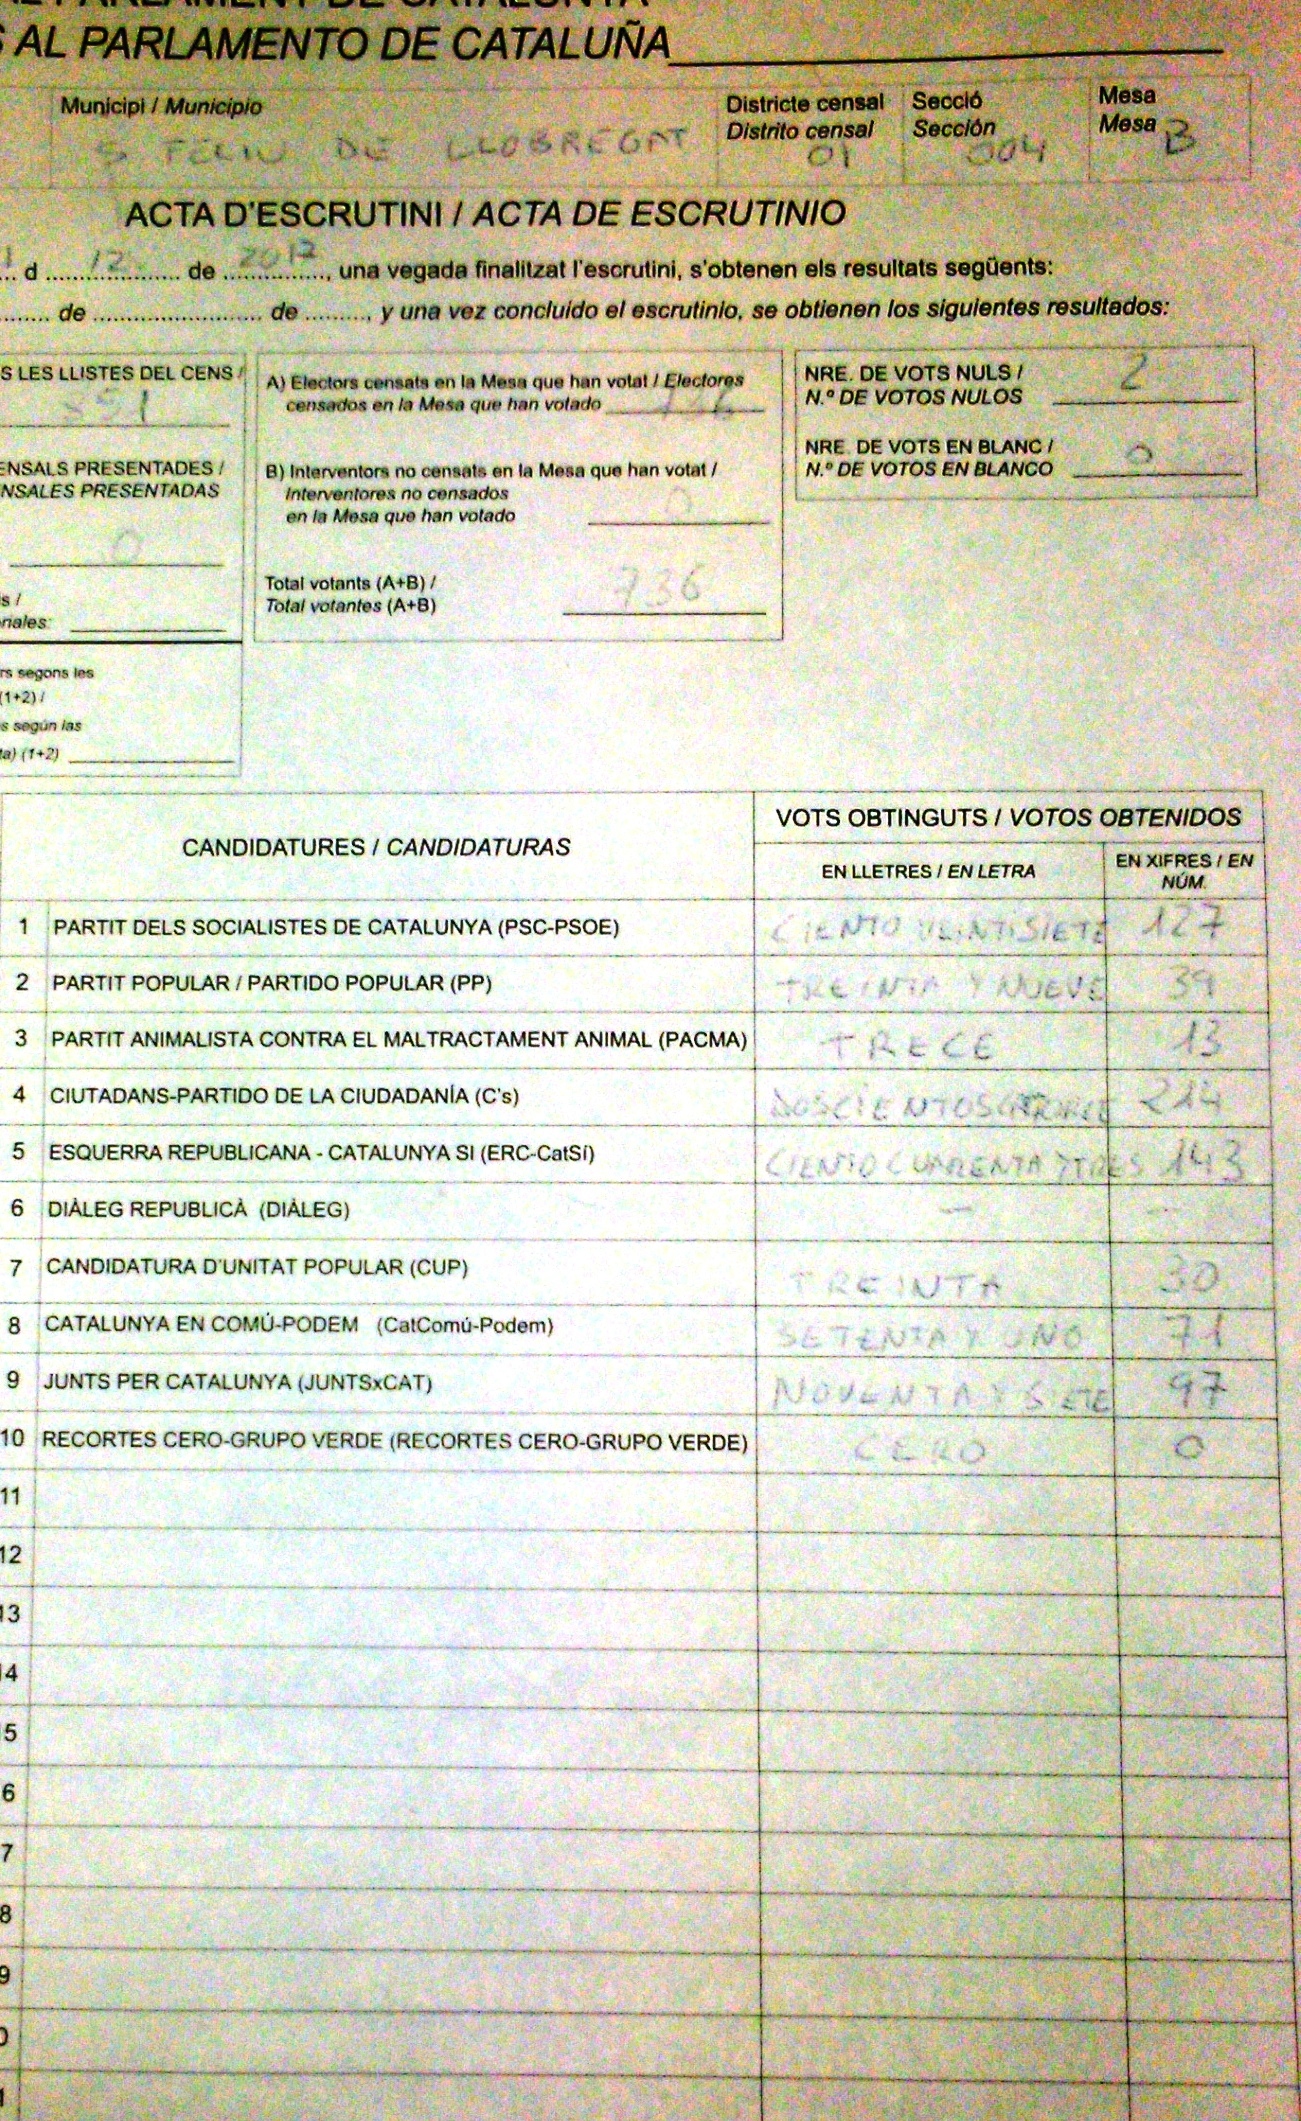 S AL PARLAMENTO DE CATALUÑA
Municipi / Municipio
S. FELIU DE LLOBREGAT
Districte censal
Distrito censal
01
Secció
Sección
004
Mesa
Mesa
B
ACTA D'ESCRUTINI / ACTA DE ESCRUTINIO
d 12 de 2017, una vegada finalitzat l'escrutini, s'obtenen els resultats següents:
de de , y una vez concluido el escrutinio, se obtienen los siguientes resultados:
S LES LLISTES DEL CENS /
ENSALS PRESENTADES /
NSALES PRESENTADAS
0
rs segons les
(1+2) /
s según las
(1+2)
A) Electors censats en la Mesa que han votat / Electores
censados en la Mesa que han votado
B) Interventors no censats en la Mesa que han votat /
Interventores no censados
en la Mesa que han votado 0
Total votants (A+B) /
Total votantes (A+B) 736
NRE. DE VOTS NULS /
N.º DE VOTOS NULOS 2
NRE. DE VOTS EN BLANC /
N.º DE VOTOS EN BLANCO 0
CANDIDATURES / CANDIDATURAS
VOTS OBTINGUTS / VOTOS OBTENIDOS
EN LLETRES / EN LETRA
EN XIFRES / EN NÚM.
1 PARTIT DELS SOCIALISTES DE CATALUNYA (PSC-PSOE) CIENTO VEINTISIETE 127
2 PARTIT POPULAR / PARTIDO POPULAR (PP) TREINTA Y NUEVE 39
3 PARTIT ANIMALISTA CONTRA EL MALTRACTAMENT ANIMAL (PACMA) TRECE 13
4 CIUTADANS-PARTIDO DE LA CIUDADANÍA (C's) DOSCIENTOS 214
5 ESQUERRA REPUBLICANA - CATALUNYA SI (ERC-CatSí) CIENTO CUARENTA Y TRES 143
6 DIÀLEG REPUBLICÀ (DIÀLEG) - -
7 CANDIDATURA D'UNITAT POPULAR (CUP) TREINTA 30
8 CATALUNYA EN COMÚ-PODEM (CatComú-Podem) SETENTA Y UNO 71
9 JUNTS PER CATALUNYA (JUNTSxCAT) NOVENTA Y SIETE 97
10 RECORTES CERO-GRUPO VERDE (RECORTES CERO-GRUPO VERDE) CERO 0
11
12
13
14
5
6
7
8
9
0
1